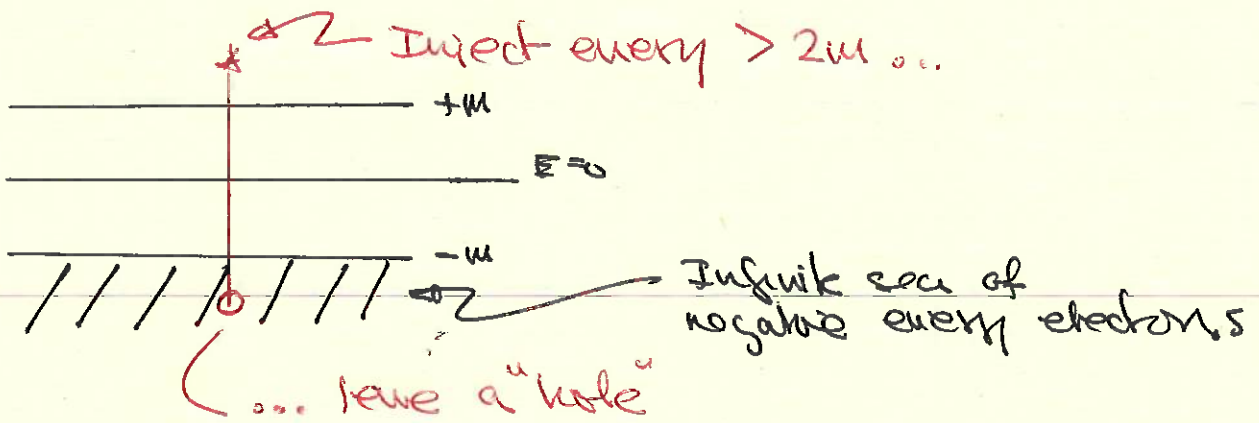 Inject energy > 2m ...
+m
E=0
-m
Infinite sea of
negative energy electrons
... leave a "hole"